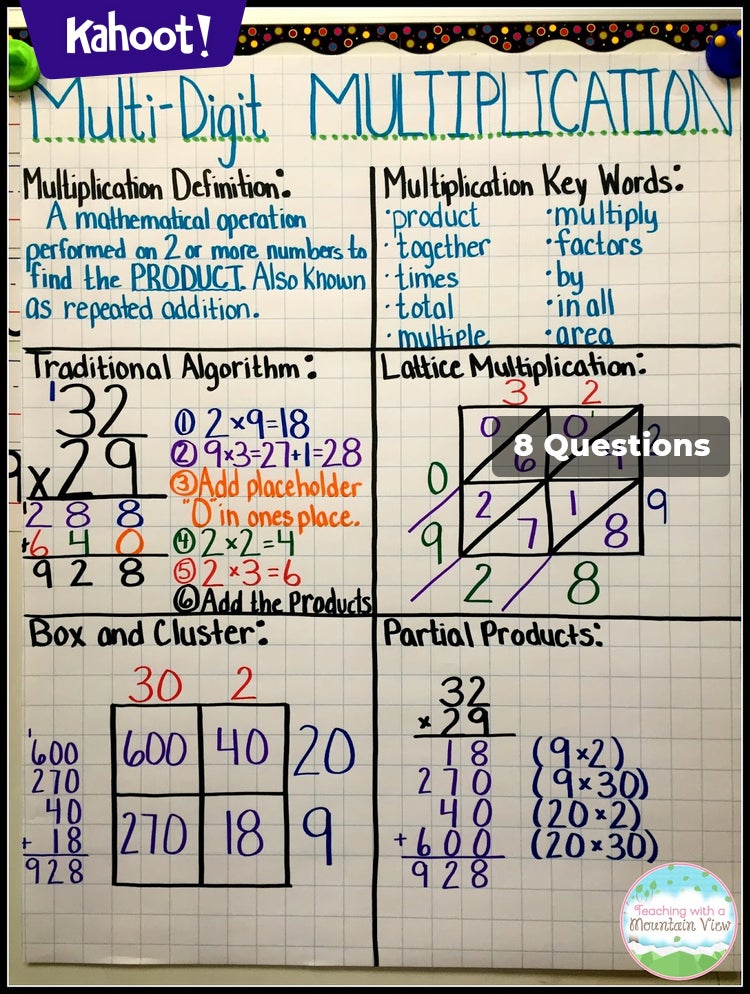 Kahoot!
Multi-Digit MULTIPLICATION
Multiplication Definition:
A mathematical operation
performed on 2 or more numbers to
find the PRODUCT. Also Known
as repeated addition.
Multiplication Key Words:
·product
·together
·times
·total
·multiple
·multiply
·factors
·by
·in all
·area
Traditional Algorithm:
1
32
x29
1
288
+640
928
① 2×9=18
② 9×3=27+1=28
③ Add placeholder
"0" in ones place.
④ 2×2=4
⑤ 2×3=6
⑥ Add the Products
Lattice Multiplication:
3 2
0 0 1
6
8 Questions
0
2 1 9
9 7 8
2 8
Box and Cluster:
30 2
600 40 20
270 18 9
1
600
270
40
+ 18
928
Partial Products:
32
×29
18 (9×2)
270 (9×30)
40 (20×2)
+600 (20×30)
928
Teaching with a
Mountain View